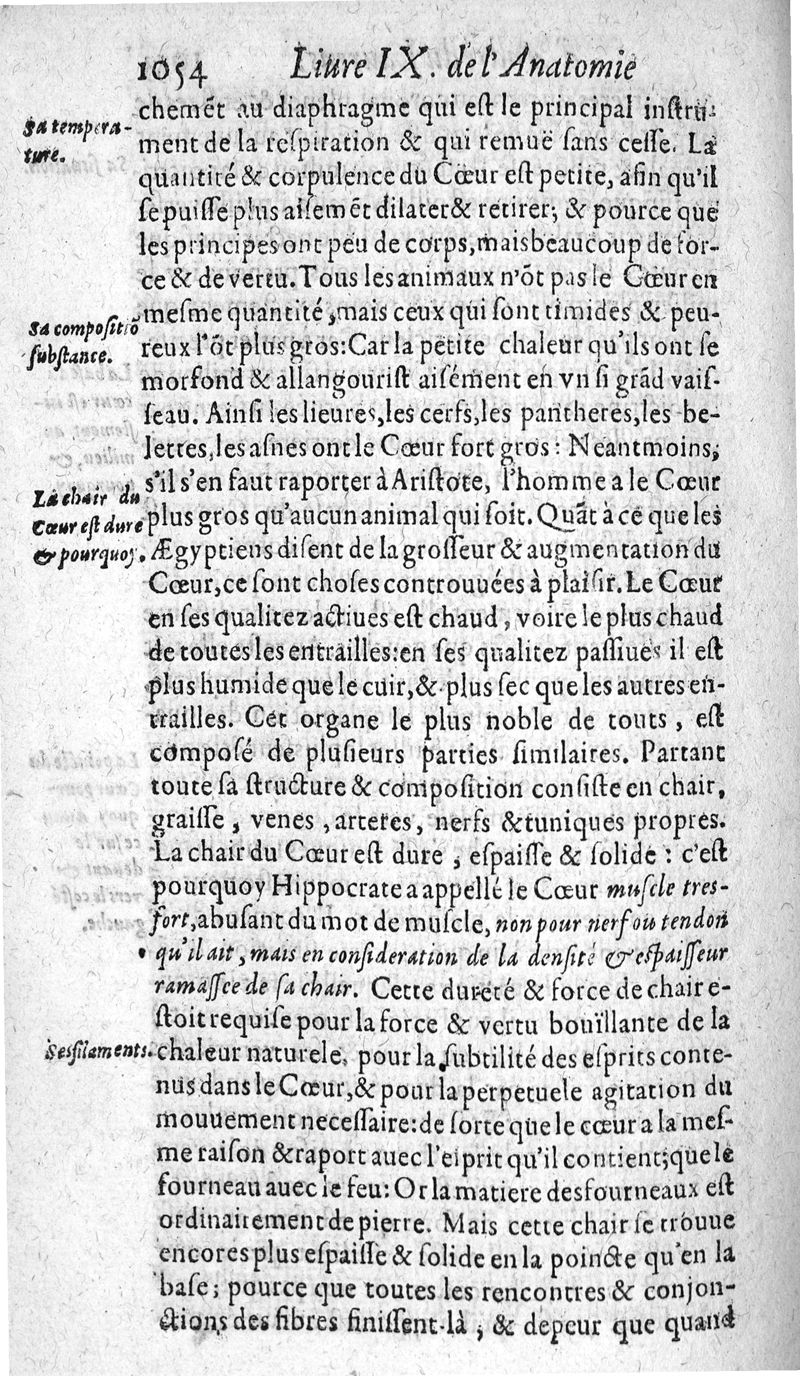 1054 Liure IX. de l'Anatomie
Sa tempera-
ture.
Sa compositiõ
substance.
La chair du
Cœur est dure
& pourquoy.
Ses filaments.
chemẽt au diaphragme qui eſt le principal inſtru-
ment de la reſpiration & qui remuë ſans ceſſe. La
quantité & corpulence du Cœur eſt petite, afin qu'il
ſe puiſſe plus aiſemẽt dilater & retirer; & pource que
les principes ont peu de corps, mais beaucoup de for-
ce & de vertu. Tous les animaux n'õt pas le Cœur en
meſme quantité, mais ceux qui ſont timides & peu-
reux l'õt plus gros: Car la petite chaleur qu'ils ont ſe
morfond & allangouriſt aiſément en vn ſi grãd vaiſ-
ſeau. Ainſi les lieures, les cerfs, les pantheres, les be-
lettes, les aſnes ont le Cœur fort gros: Neantmoins,
s'il s'en faut raporter à Ariſtote, l'homme a le Cœur
plus gros qu'aucun animal qui ſoit. Quãt à ce que les
Ægyptiens diſent de la groſſeur & augmentation du
Cœur, ce ſont choſes controuuées à plaiſir. Le Cœur
en ſes qualitez actiues eſt chaud, voire le plus chaud
de toutes les entrailles: en ſes qualitez paſſiues il eſt
plus humide que le cuir, & plus ſec que les autres en-
trailles. Cet organe le plus noble de touts, eſt
compoſé de pluſieurs parties ſimilaires. Partant
toute ſa ſtructure & compoſition conſiſte en chair,
graiſſe, venes, arteres, nerfs & tuniques propres.
La chair du Cœur eſt dure, eſpaiſſe & ſolide: c'eſt
pourquoy Hippocrate a appellé le Cœur muſcle tres-
fort, abuſant du mot de muſcle, non pour nerf ou tendon
qu'il ait, mais en conſideration de la denſité & eſpaiſſeur
ramaſſee de ſa chair. Cette dureté & force de chair e-
ſtoit requiſe pour la force & vertu bouïllante de la
chaleur naturele, pour la ſubtilité des eſprits conte-
nus dans le Cœur, & pour la perpetuele agitation du
mouuement neceſſaire: de ſorte que le cœur a la meſ-
me raiſon & raport auec l'eſprit qu'il contient; que le
fourneau auec le feu: Or la matiere des fourneaux eſt
ordinairement de pierre. Mais cette chair ſe trouue
encores plus eſpaiſſe & ſolide en la poincte qu'en la
baſe; pource que toutes les rencontres & conjon-
ctions des fibres finiſſent là, & de peur que quand